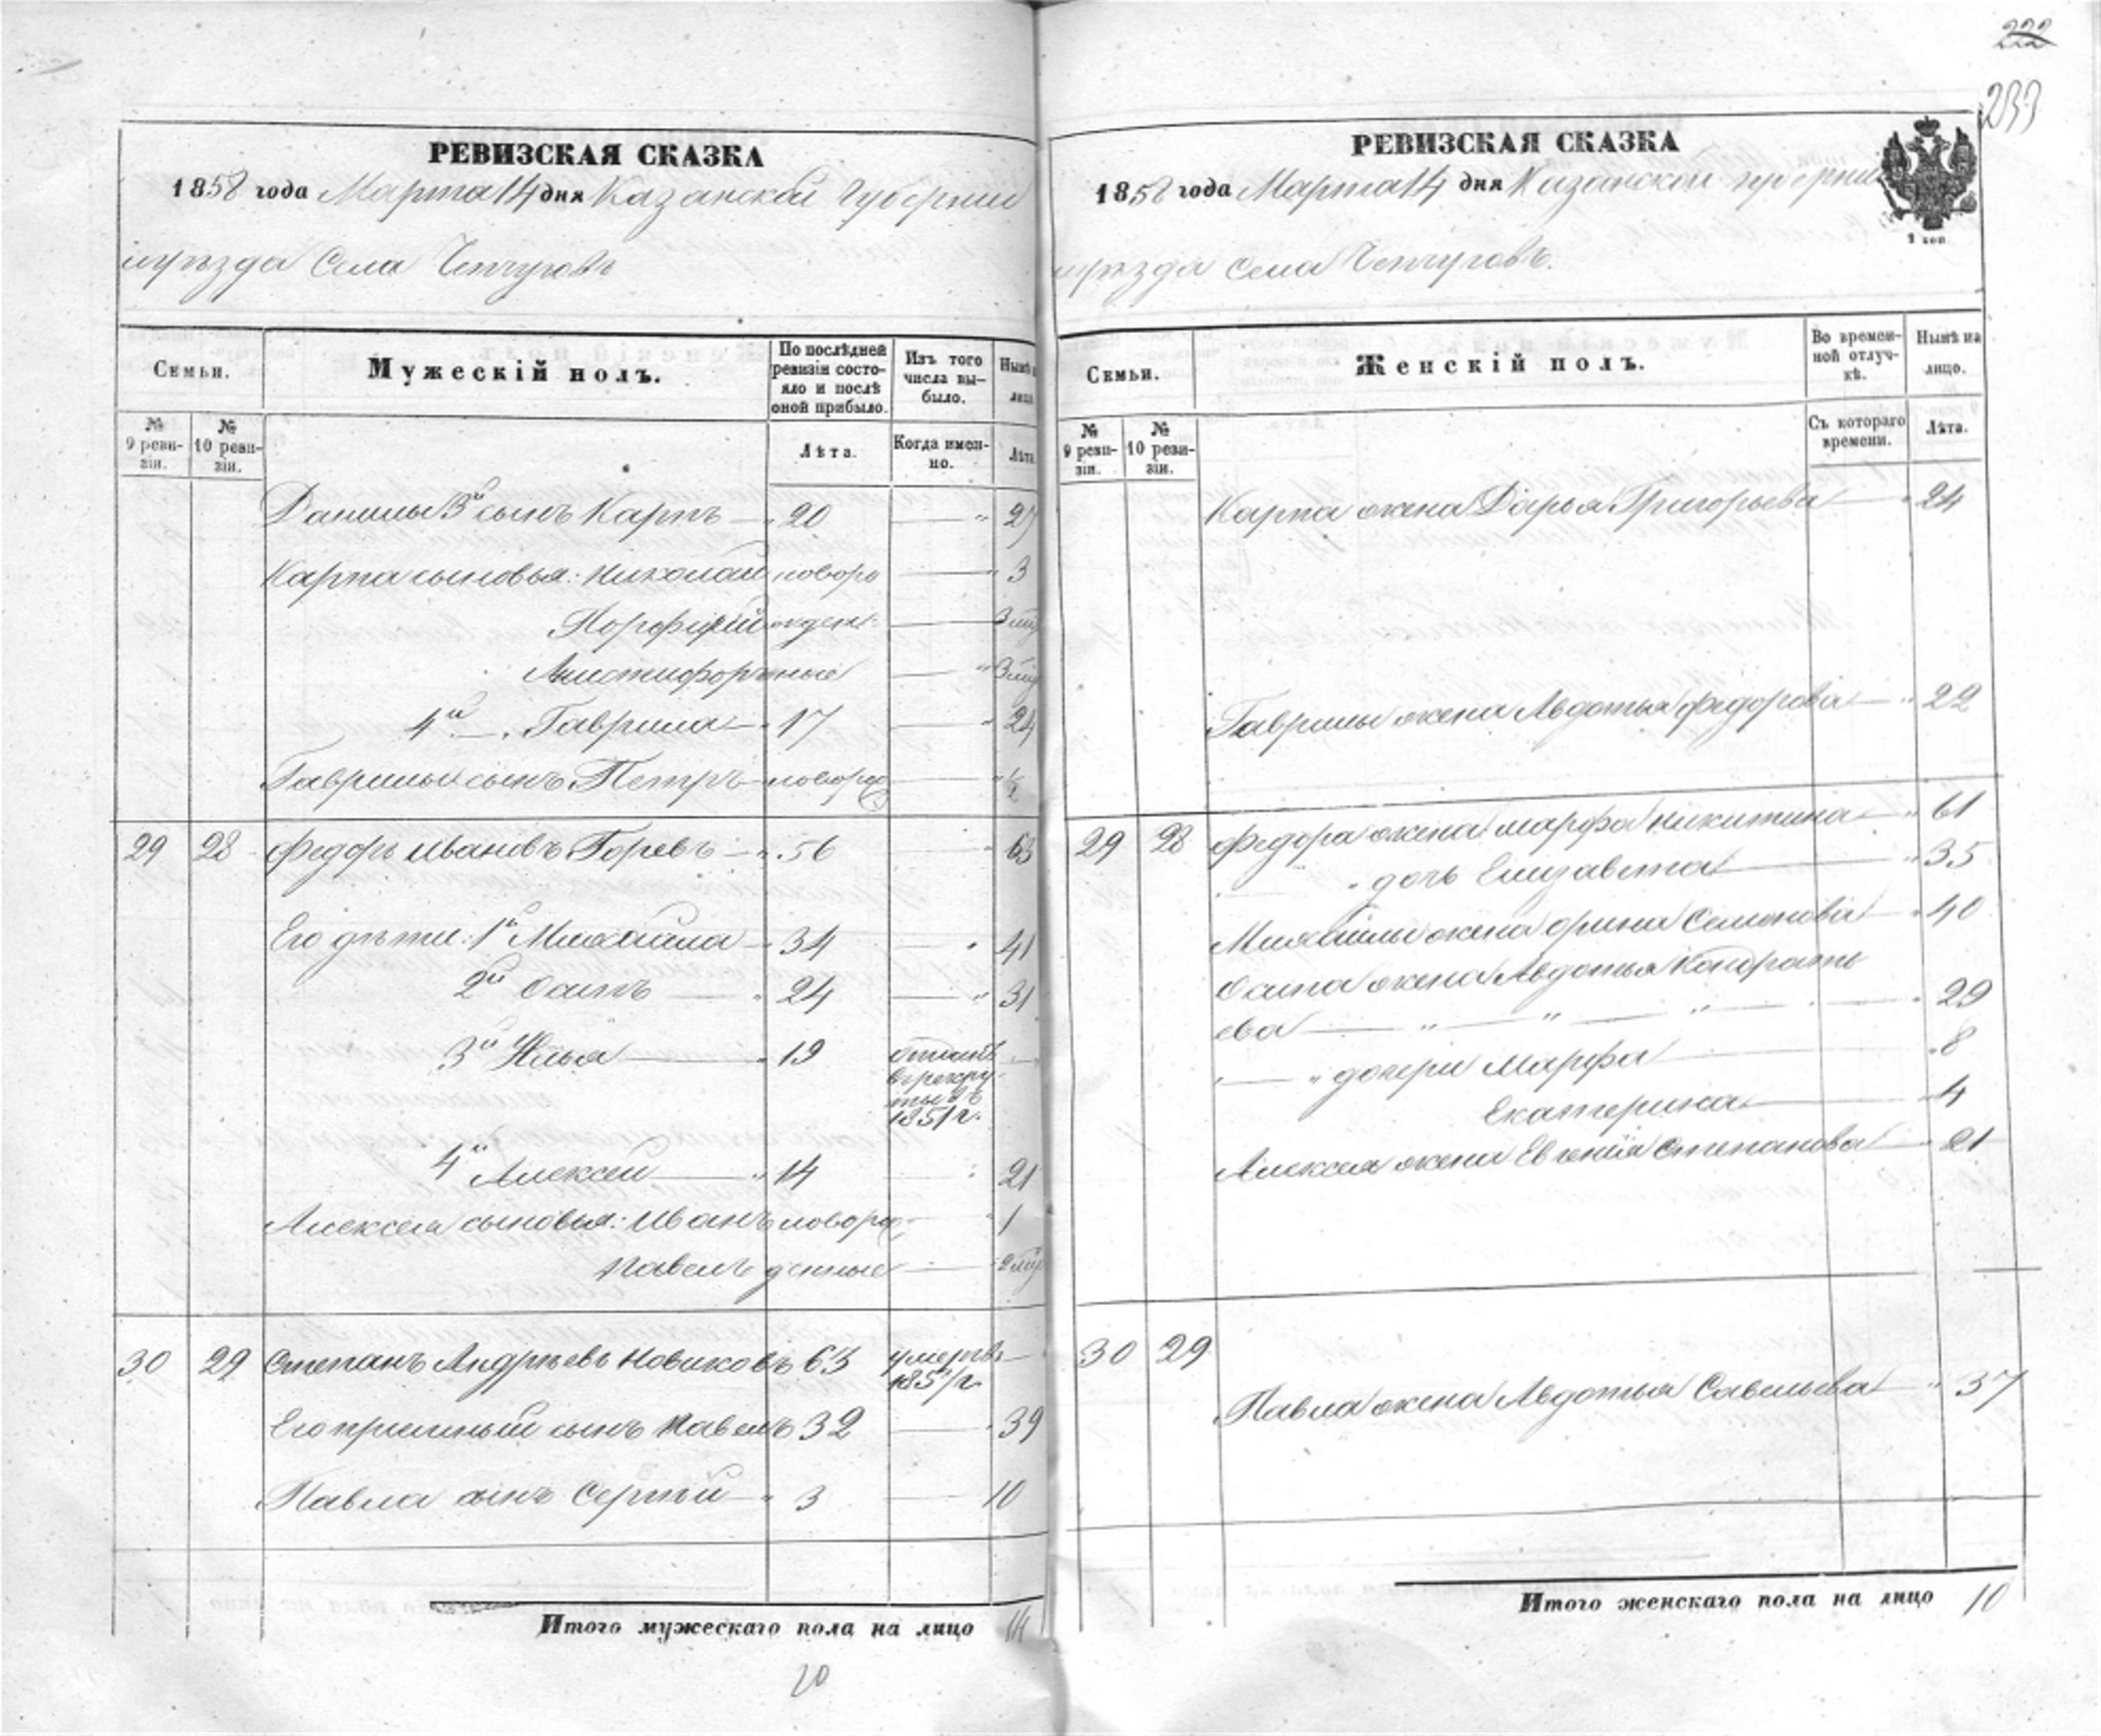 222
233
РЕВИЗСКАЯ СКАЗКА
1858 года Марта 14 дня Казанской Губернии
и уѣзда Села Чепчуговъ
Семьи.
Мужескій полъ.
По послѣдней ревизіи состояло и послѣ оной прибыло.
Изъ того числа выбыло.
Нынѣ на лицо.
№ 9 ревизіи.
№ 10 ревизіи.
Лѣта.
Когда именно.
Лѣта.
Данилы 3й сынъ Карпъ — " 20 — " 27
Карпа сыновья: Николай новоро — " 3
Порфирій жден — 3
ные — " 3
4й — " Гаврила — " 17 — " 24
Гаврилы сынъ Петръ — новорож — " ½
29 28 Федоръ Ивановъ Горевъ — " 56 — " 63
Его дѣти: 1й Михайла — " 34 — " 41
2й Осипъ — " 24 — " 31
3й Илья — " 19 отданъ
въ рекру
ты въ
1851 г.
4й Алексей — " 14 " 21
Алексея сыновья: Иванъ новорож — " 1
Павелъ денные — " 2
30 29 Степанъ Андрѣевъ Новиковъ 63 умеръ въ —
185 г.
Его приемный сынъ Павелъ 32 — " 39
Павла сынъ Сергѣй — " 3 — 10
Итого мужескаго пола на лицо 14
20
РЕВИЗСКАЯ СКАЗКА
1858 года Марта 14 дня Казанской губерніи
2 коп
и уѣзда Села Чепчуговъ.
Семьи.
Женскій полъ.
Во временной отлучкѣ.
Нынѣ на лицо.
№ 9 ревизіи.
№ 10 ревизіи.
Съ котораго времени.
Лѣта.
Карпа жена Дарья Григорьева — " 24
Гаврилы жена Авдотья Федорова — " 22
29 28 Федора жена Марфа Никитина — " 61
" дочь Елизавета — " 35
Михайлы жена Орина Семенова — " 40
Осипа жена Авдотья Кондрать
ева — " — " — " — " 29
— " дочери Марфа — " 8
Екатерина — " 4
Алексея жена Евгенія Степанова — " 21
30 29
Павла жена Авдотья Савельева — " 37
Итого женскаго пола на лицо 10